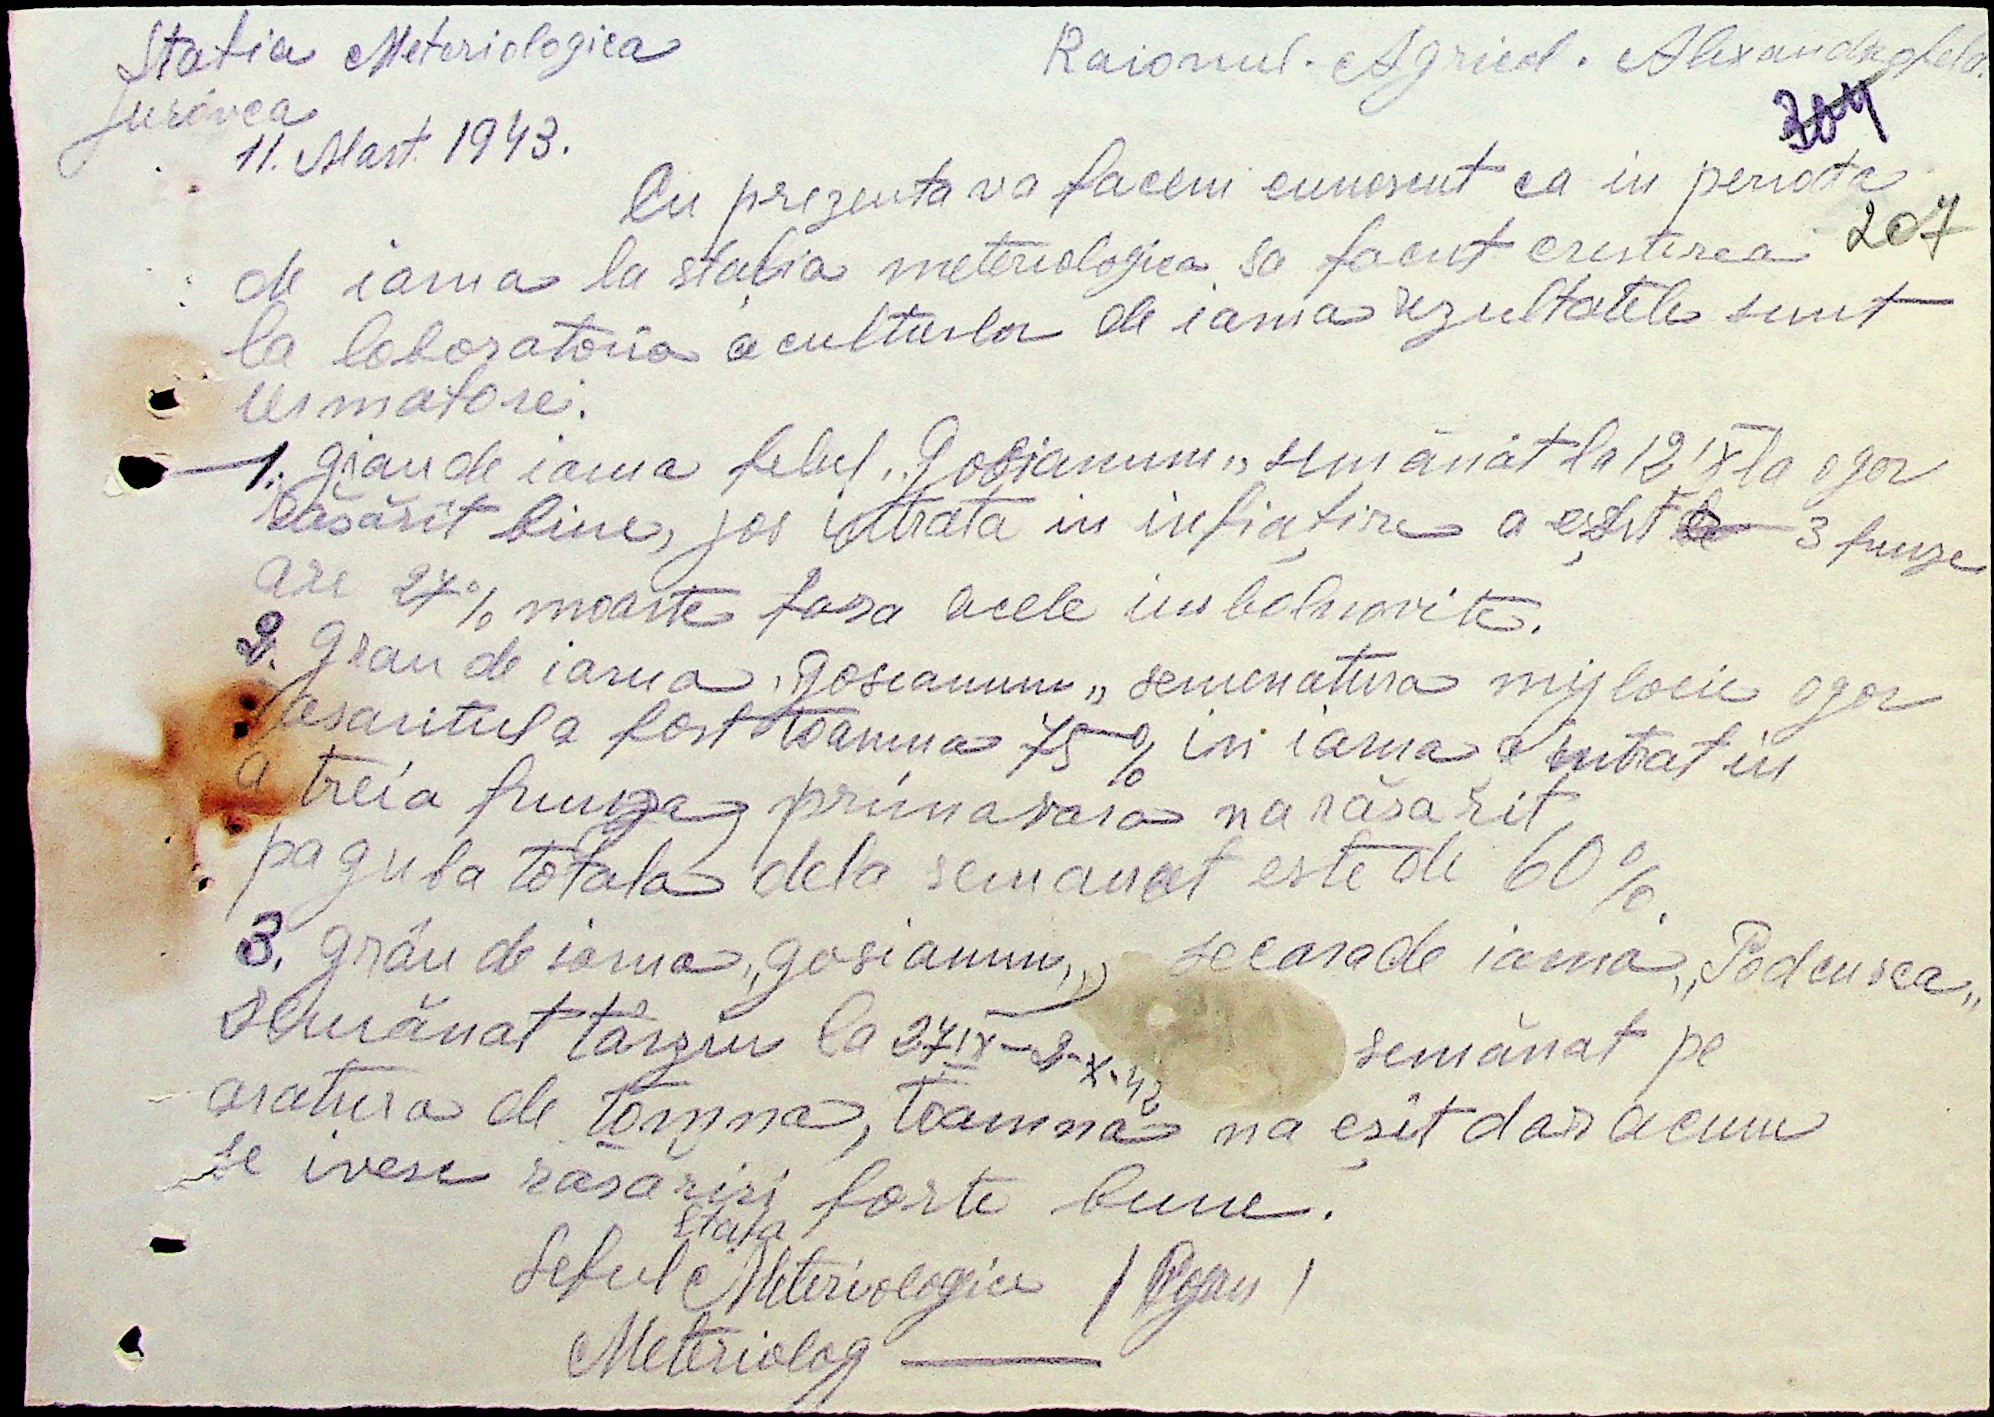 Statia Meteriologica
Jurovca
11. Mart. 1943.
Raionul. Agricol. Alexandrfeld.
304
207
Cu prezenta va facem cunoscut ca in periota
de iarna la stația meteriologica sa facut cresterea
la loboratoria a culturlor de iarna rezultatele sunt
urmatore.
1. grau de iarna felul „Gosianum„ semănat la 12 IX la ogor
răsărit bine, jos intrata in infiațire a eșit 3 frunze
are 27% moarte fara acele imbolnovite.
2. Grau de iarna „gosianum„ semenatura mijlocie ogor
rasaritul a fost toamna 75% in iarna a intrat in
a treia frunza, primavara na răsarit,
paguba totala dela semanat este de 60%.
3. grâu de iarna „gosianum„ secara de iarna „Podcusca„
semănat târziu la 27 IX-2-X-42 semănat pe
aratura de tomna, toamna na eșit dar acum
se ivesc răsăriri forte bune.
Seful Stația Meteriologice
Meteriolog